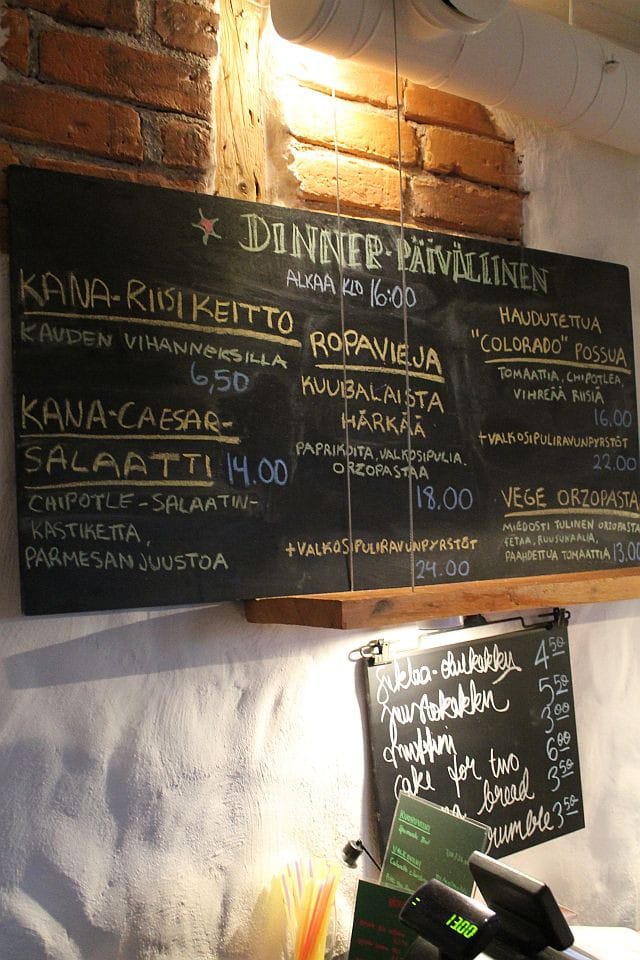 DINNER-PÄIVÄLLINEN
ALKAA KLO 16:00
KANA-RIISIKEITTO
KAUDEN VIHANNEKSILLA
6,50
KANA-CAESAR-
SALAATTI 14.00
CHIPOTLE-SALAATIN-
KASTIKETTA,
PARMESANJUUSTOA
ROPAVIEJA
KUUBALAISTA
HÄRKÄÄ
PAPRIKOITA, VALKOSIPULIA.
ORZOPASTAA
18.00
+VALKOSIPULIRAVUNPYRSTÖT
24.00
HAUDUTETTUA
"COLORADO" POSSUA
TOMAATTIA, CHIPOTLEA,
VIHREÄÄ RIISIÄ
16.00
+VALKOSIPULIRAVUNPYRSTÖT
22.00
VEGE ORZOPASTA
MIEDOSTI TULINEN ORZOPASTA
FETAA, RUUSUKAALIA,
PAAHDETTUA TOMAATTIA 13.00
Suklaa-oluekakku 4.50
Juustokakku 5.50
Muffini 3.00
cake for two 6.00
bread 3.50
rumble 3.50
13.00